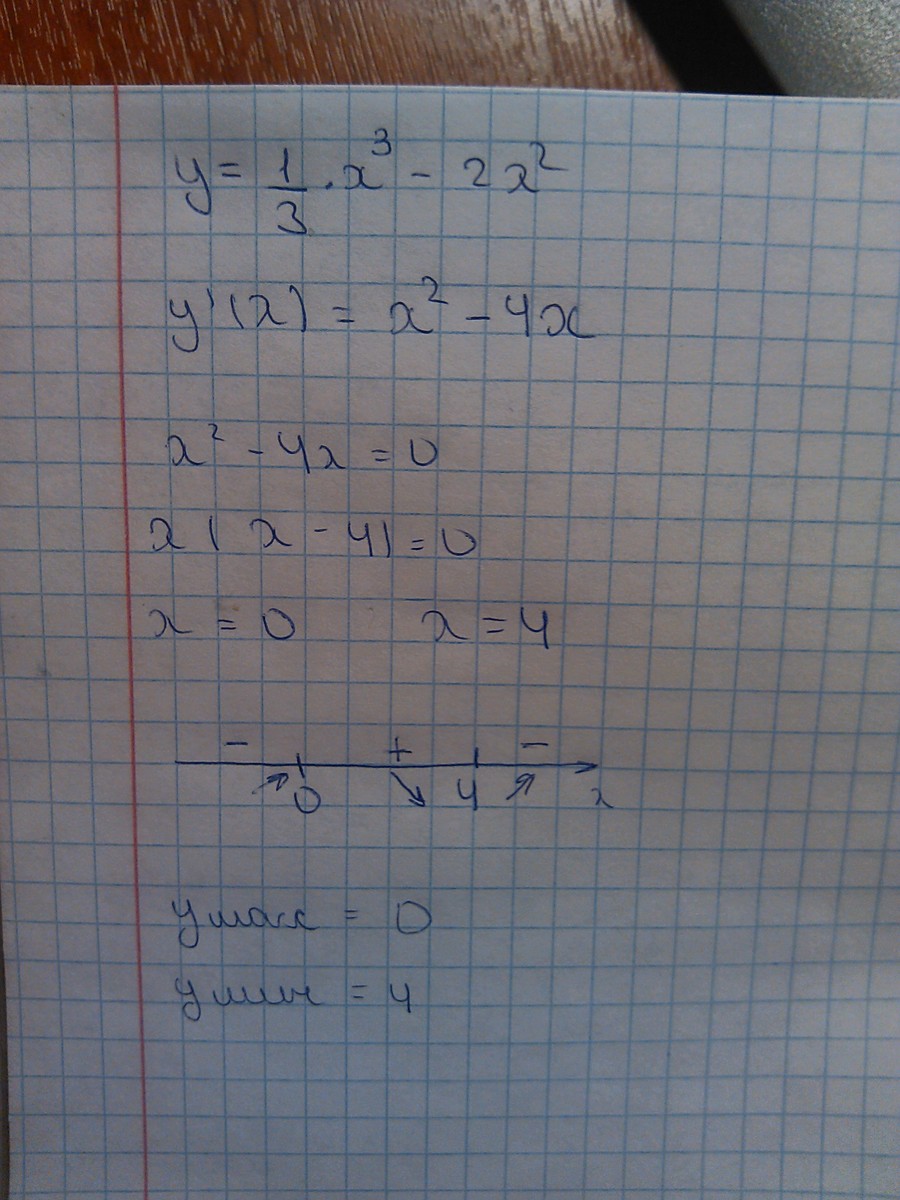 y = 1/3 · x³ - 2x²
y'(x) = x² - 4x
x² - 4x = 0
x(x - 4) = 0
x = 0 x = 4
- + -
↗ 0 ↘ 4 ↗ x
y макс = 0
y мин = 4